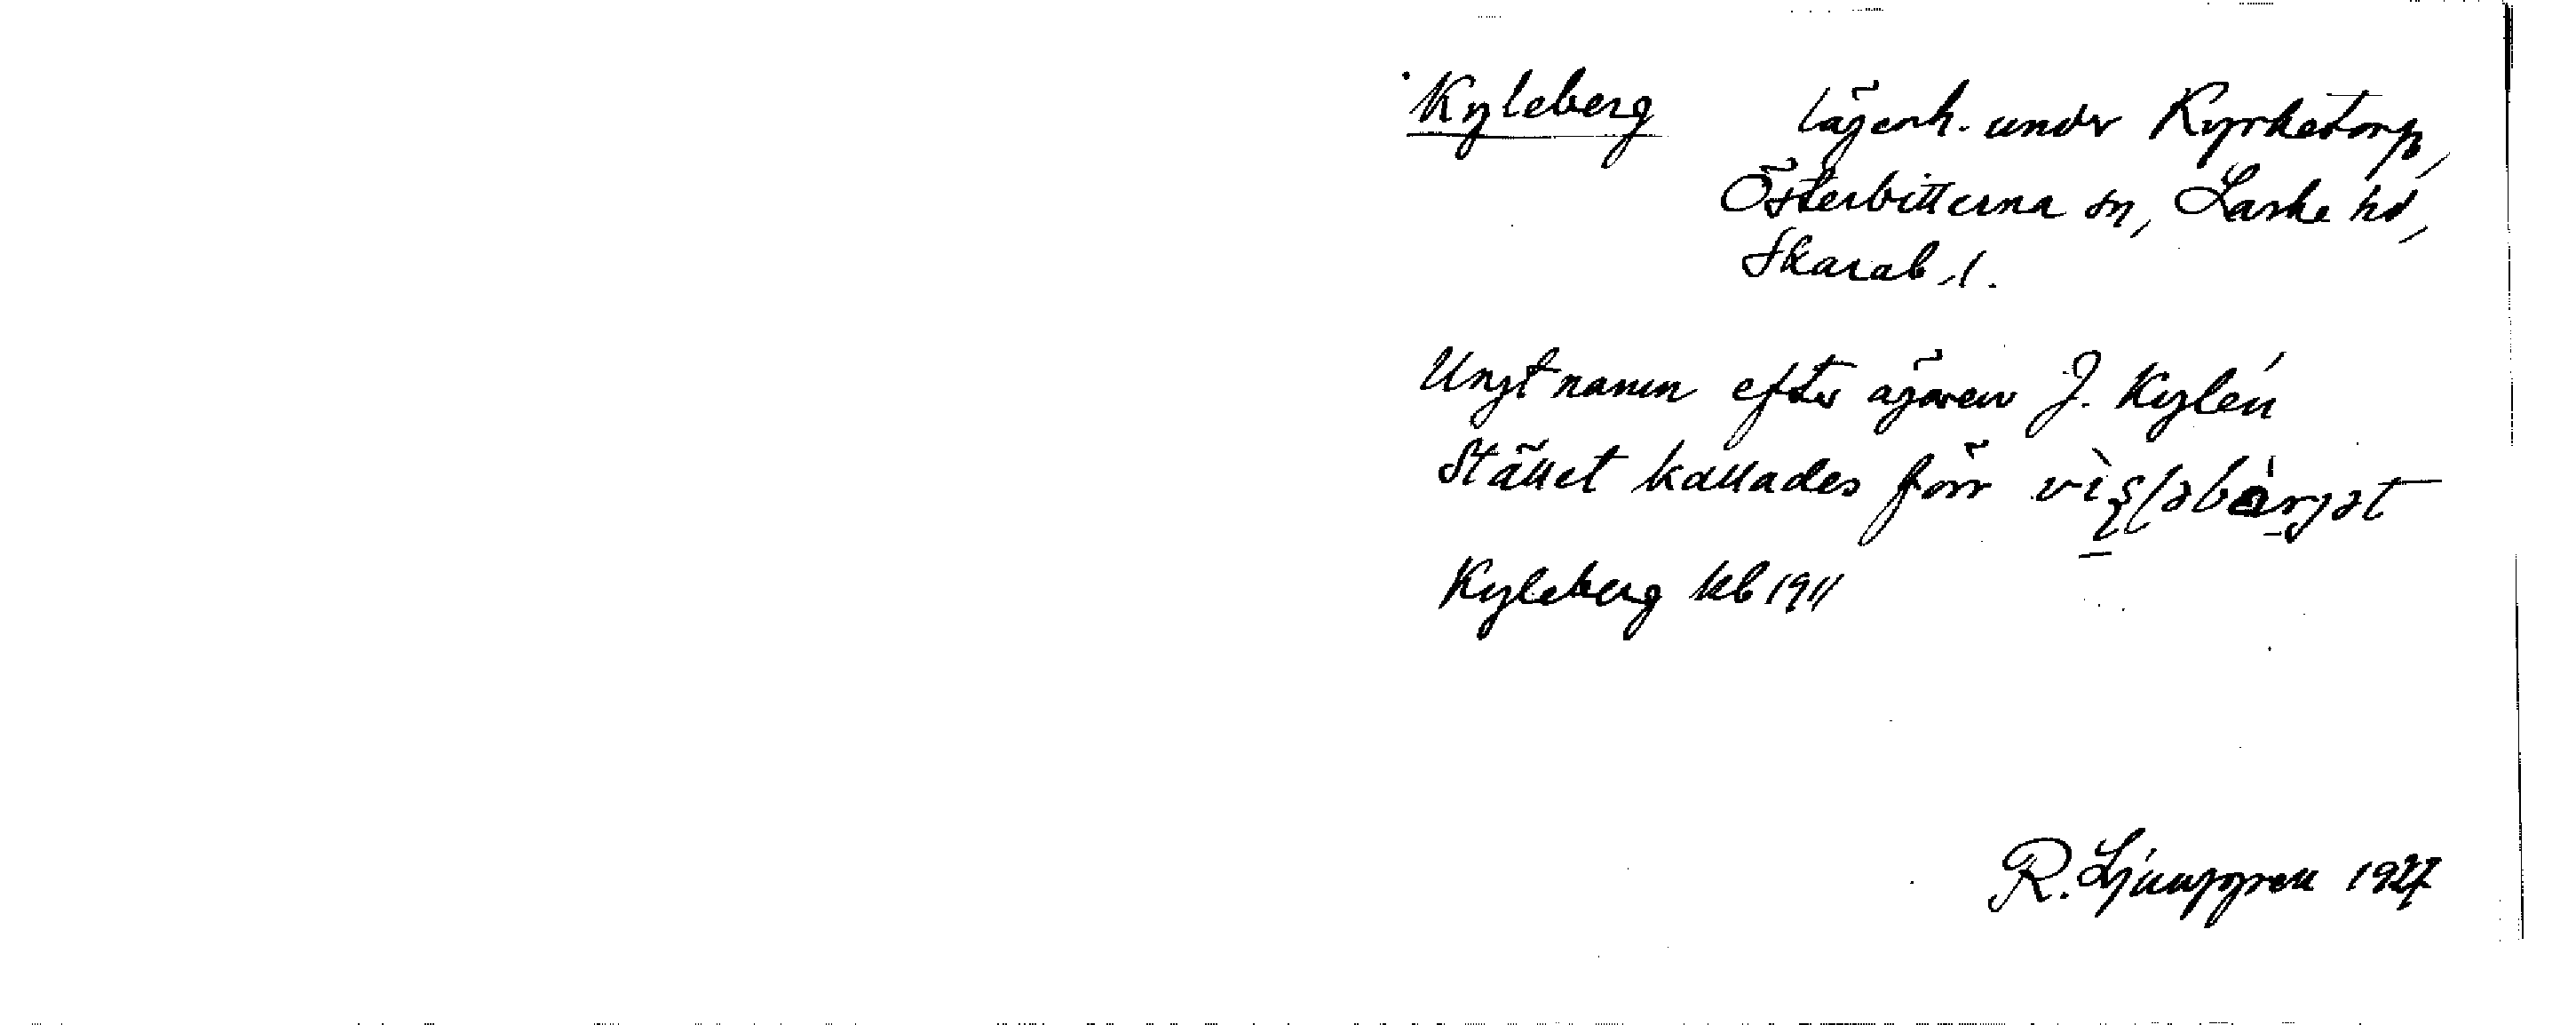 Kyleberg lägenh. under Kyrketorp,
Österbitterna sn, Laske hd,
Skarab. l.
Ungt namn efter ägaren J. Kylén
Stället kallades förr
Kyleberg kb 1911
R. Ljunggren 1927